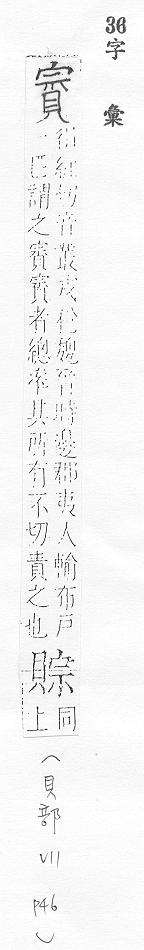 36
字彙
賨
徂紅切音叢戎稅魏晉時邊郡夷人輸布戶
一匹謂之賨賨者總率其所有不切責之也
賩
同
上
(貝部 VII P46)